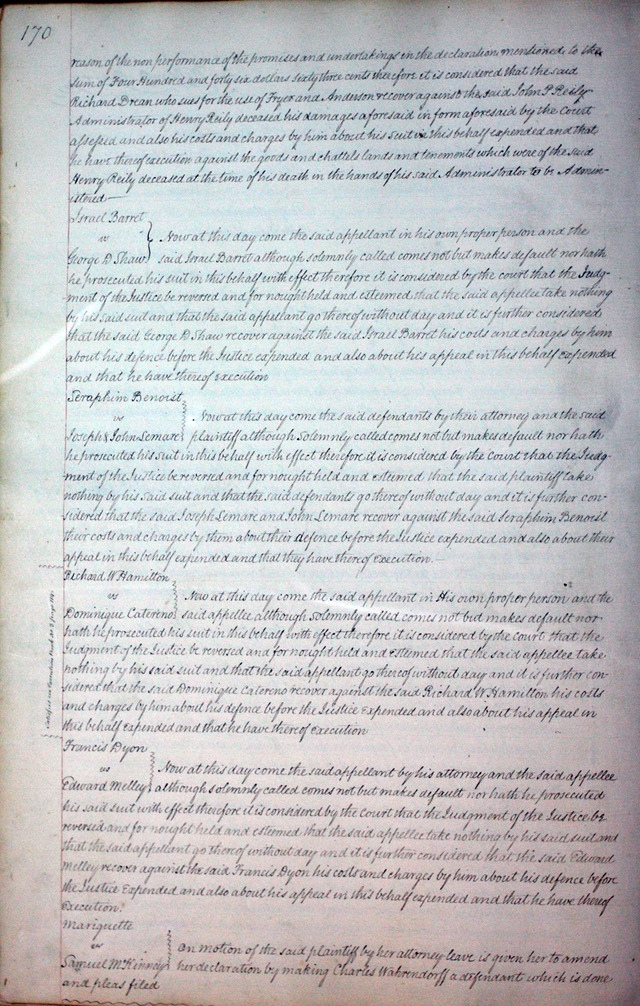 170
reason of the non performance of the promises and undertakings in the declaration mentioned to the
sum of Four Hundred and forty six dollars sixty three cents therefore it is considered that the said
Richard Drean who sues for the use of Fryer and Anderson recover against the said John P. Reily
Administrator of Henry Reily deceased his damages aforesaid in form aforesaid by the Court
assessed and also his costs and charges by him about his suit in this behalf expended and that
he have thereof execution against the goods and chattels lands and tenements which were of the said
Henry Reily deceased at the time of his death in the hands of his said Administrator to be Admin-
istered
Israel Barret
vs Now at this day come the said appellant in his own proper person and the
George D. Shaw said Israel Barret although solemnly called comes not but makes default nor hath
he prosecuted his suit in this behalf with effect therefore it is considered by the court that the Judg-
ment of the Justice be reversed and for nought held and esteemed that the said appellee take nothing
by his said suit and that the said appellant go thereof without day and it is further considered
that the said George D. Shaw recover against the said Israel Barret his costs and charges by him
about his defence before the Justice expended and also about his appeal in this behalf expended
and that he have thereof execution
Seraphim Benoist
vs Now at this day come the said defendants by their attorney and the said
Joseph & John Lemare plaintiff although Solemnly called comes not but makes default nor hath
he prosecuted his suit in this behalf with effect therefore it is considered by the Court that the Judg-
ment of the Justice be reversed and for nought held and esteemed that the said plaintiff take
nothing by his said suit and that the said defendants go thereof without day and it is further con-
sidered that the said Joseph Lemare and John Lemare recover against the said Seraphim Benoist
their costs and charges by them about their defence before the Justice expended and also about their
appeal in this behalf expended and that they have thereof execution.
Richard W Hamilton
vs Now at this day come the said appellant in His own proper person and the
Dominique Catereno said appellee although solemnly called comes not but makes default nor
hath he prosecuted his suit in this behalf with effect therefore it is considered by the court that the
Judgment of the Justice be reversed and for nought held and esteemed that the said appellee take
nothing by his said suit and that the said appellant go thereof without day and it is further con-
sidered that the said Dominique Catereno recover against the said Richard W. Hamilton his costs
and charges by him about his defence before the Justice Expended and also about his appeal in
this behalf expended and that he have thereof execution
Francis Dyon
vs Now at this day come the said appellant by his attorney and the said appellee
Edward Melley although solemnly called comes not but makes default nor hath he prosecuted
his said suit with effect therefore it is considered by the Court that the Judgment of the Justice be
reversed and for nought held and esteemed that the said appellee take nothing by his said suit and
that the said appellant go thereof without day and it is further considered that the said Edward
Melley recover against the said Francis Dyon his costs and charges by him about his defence before
the Justice Expended and also about his appeal in this behalf expended and that he have thereof
Execution.
Mariguette
vs on motion of the said plaintiff by her attorney leave is given her to amend
Samuel McKinney her declaration by making Charles Wahrendorff a defendant which is done
and pleas filed